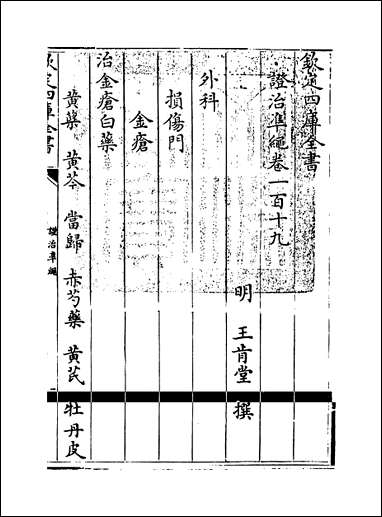 欽定四庫全書
證治準繩卷一百十九
明 王肯堂 撰
外科
損傷門
金瘡
治金瘡白藥
黄蘗 黄芩 當歸 赤芍藥 黄芪 牡丹皮
欽定四庫全書
證治準繩